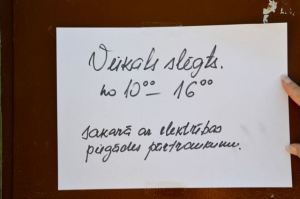 Veikals slēgts.
no 10⁰⁰ – 16⁰⁰
sakarā ar elektrības
piegādes pārtraukumu.